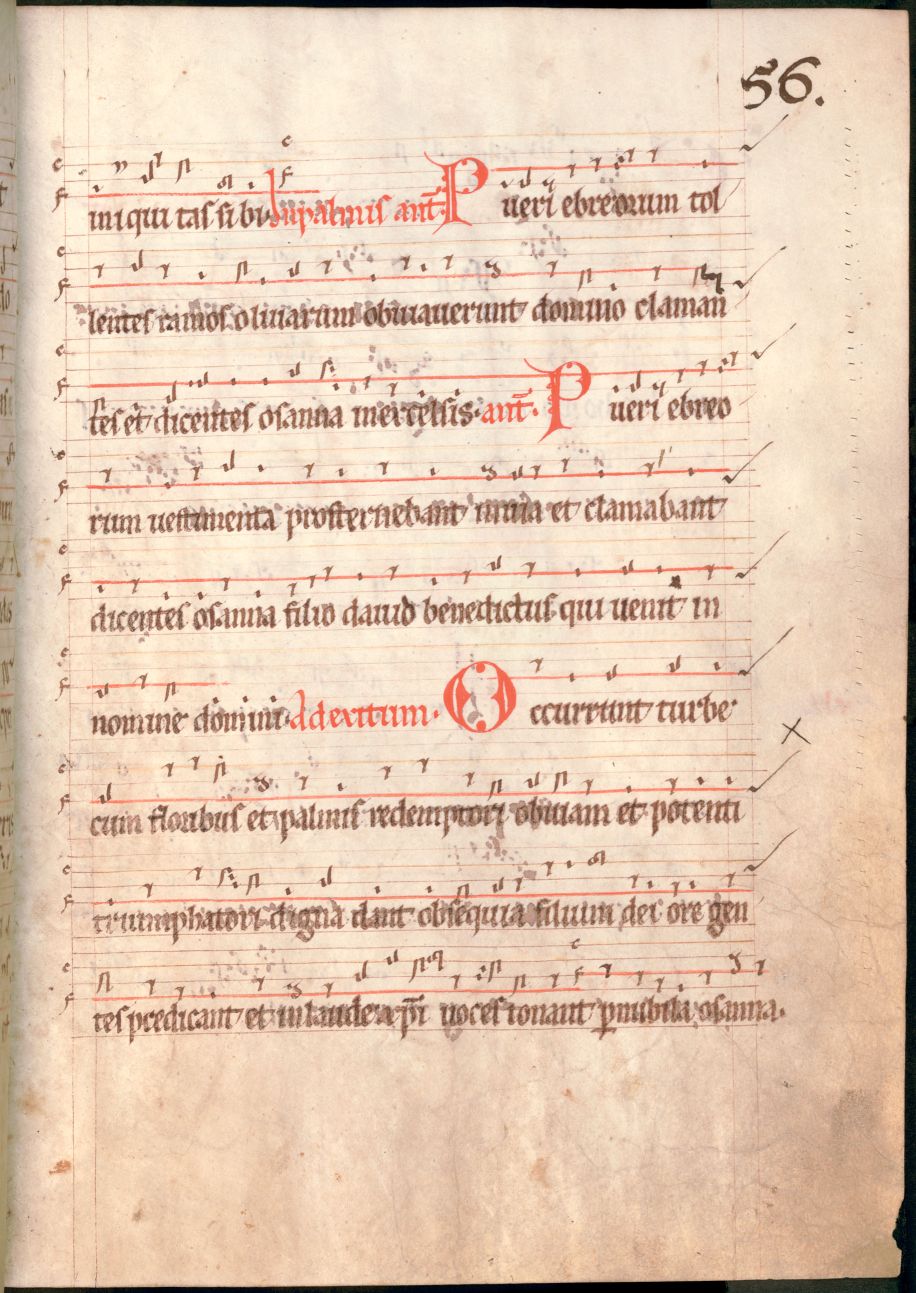 56.
iniqui tas si bi. In palmis ant̄. Pueri ebreorum tol
lentes ramos oliuarum obuiauerunt domino claman
tes et dicentes osanna in excelsis. ant̄. Pueri ebreo
rum uestimenta prosternebant in uia et clamabant
dicentes osanna filio dauid benedictus qui uenit in
nomine domini. Ad exitum. Occurrunt turbe
cum floribus et palmis redemptori obuiam et potenti
triumphatori digna dant obsequia filium dei ore gen
tes predicant et in laude xp̄i uoces tonant ꝑ nubila osanna.